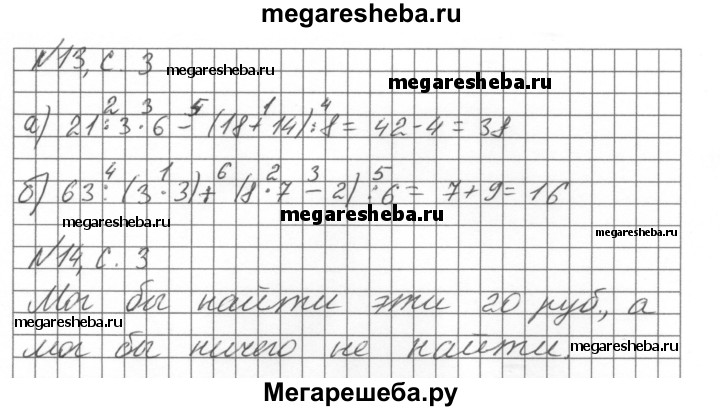 megaresheba.ru
№13, с. 3
megaresheba.ru
megaresheba.ru
2 3 5 1 4
а) 21 : 3 · 6 - (18 + 14) : 8 = 42 - 4 = 38
4 1 6 2 3 5
б) 63 : (3 · 3) + (8 · 7 - 2) : 6 = 7 + 9 = 16
megaresheba.ru
megaresheba.ru
megaresheba.ru
№14, с. 3
Мог бы найти эти 20 руб., а
megaresheba.ru
мог бы ничего не найти.
megaresheba.ru
Мегарешеба.ру